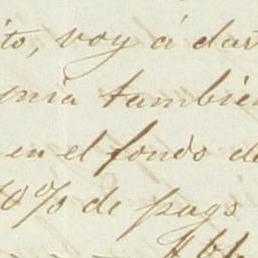 ito, voy á dar
mia también
en el fondo de
0% de pago